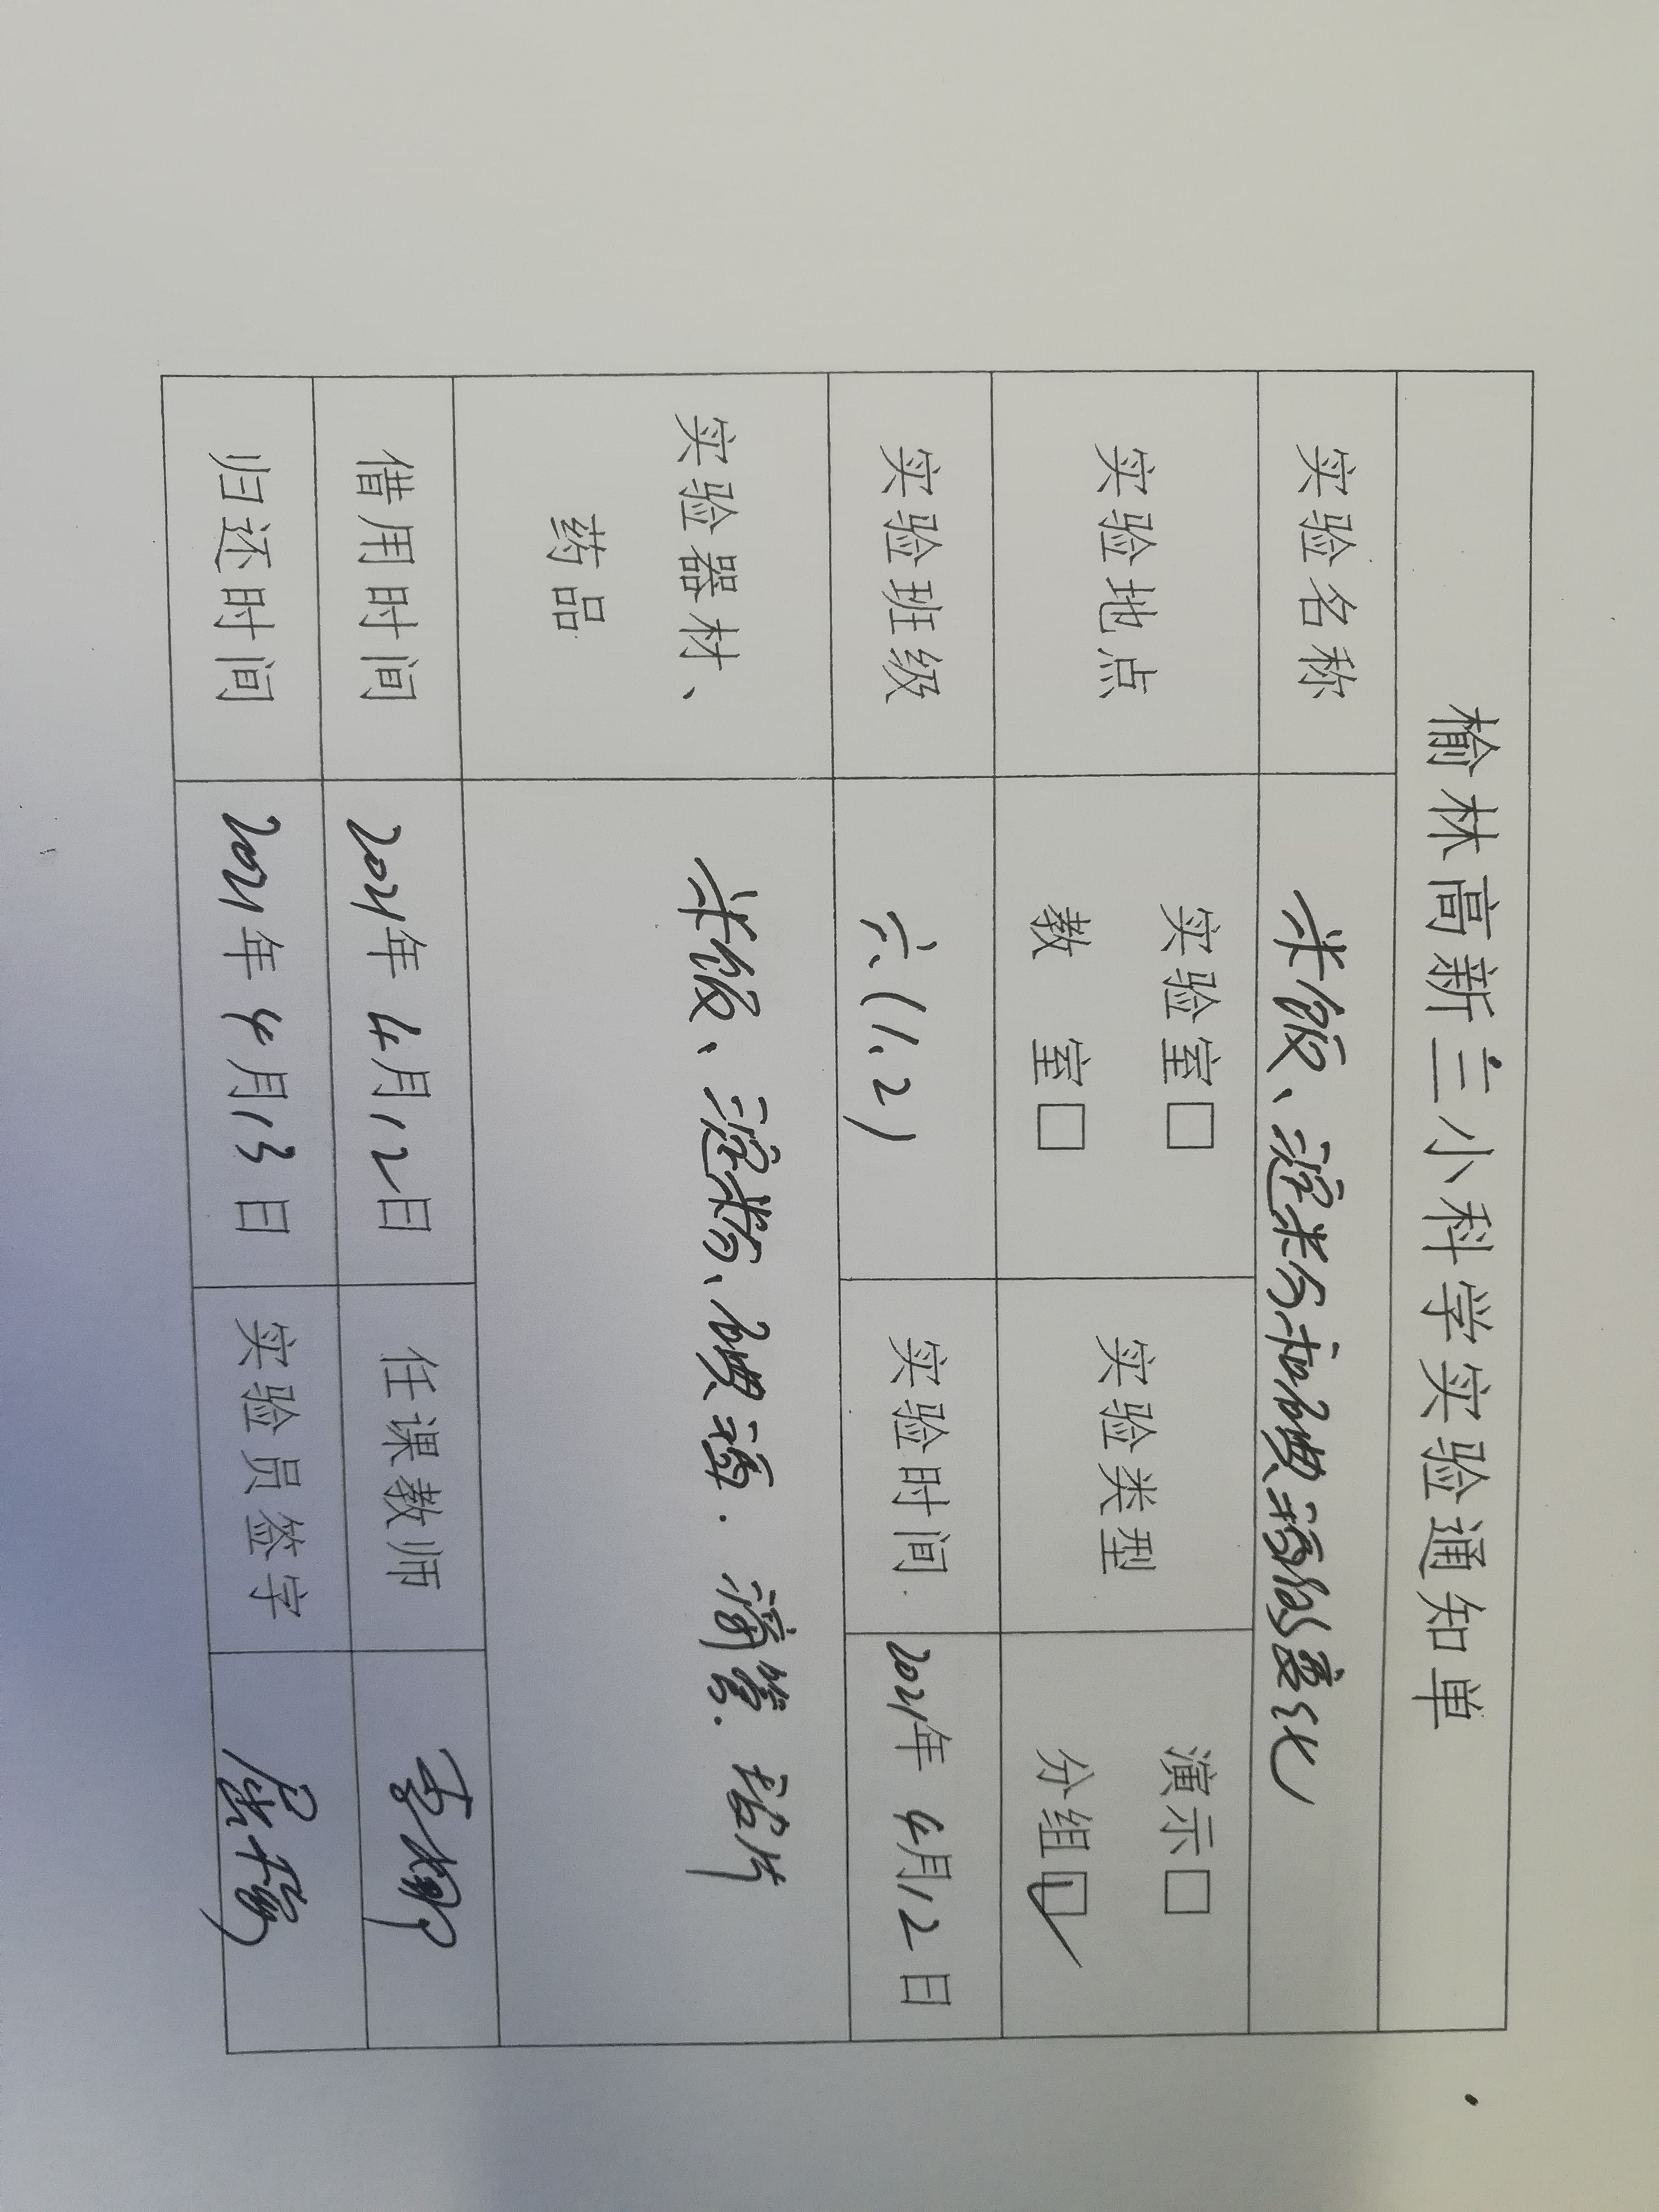 榆林高新三小科学实验通知单
实验名称 米饭、淀粉和碘酒的变化
实验地点 实验室□ 教 室□ 实验类型 演示□ 分组☑
实验班级 六(1.2) 实验时间 2021年4月12日
实验器材、药品 米饭、淀粉、碘酒. 滴管.
借用时间 2021年4月12日 任课教师
归还时间 2021年4月13日 实验员签字